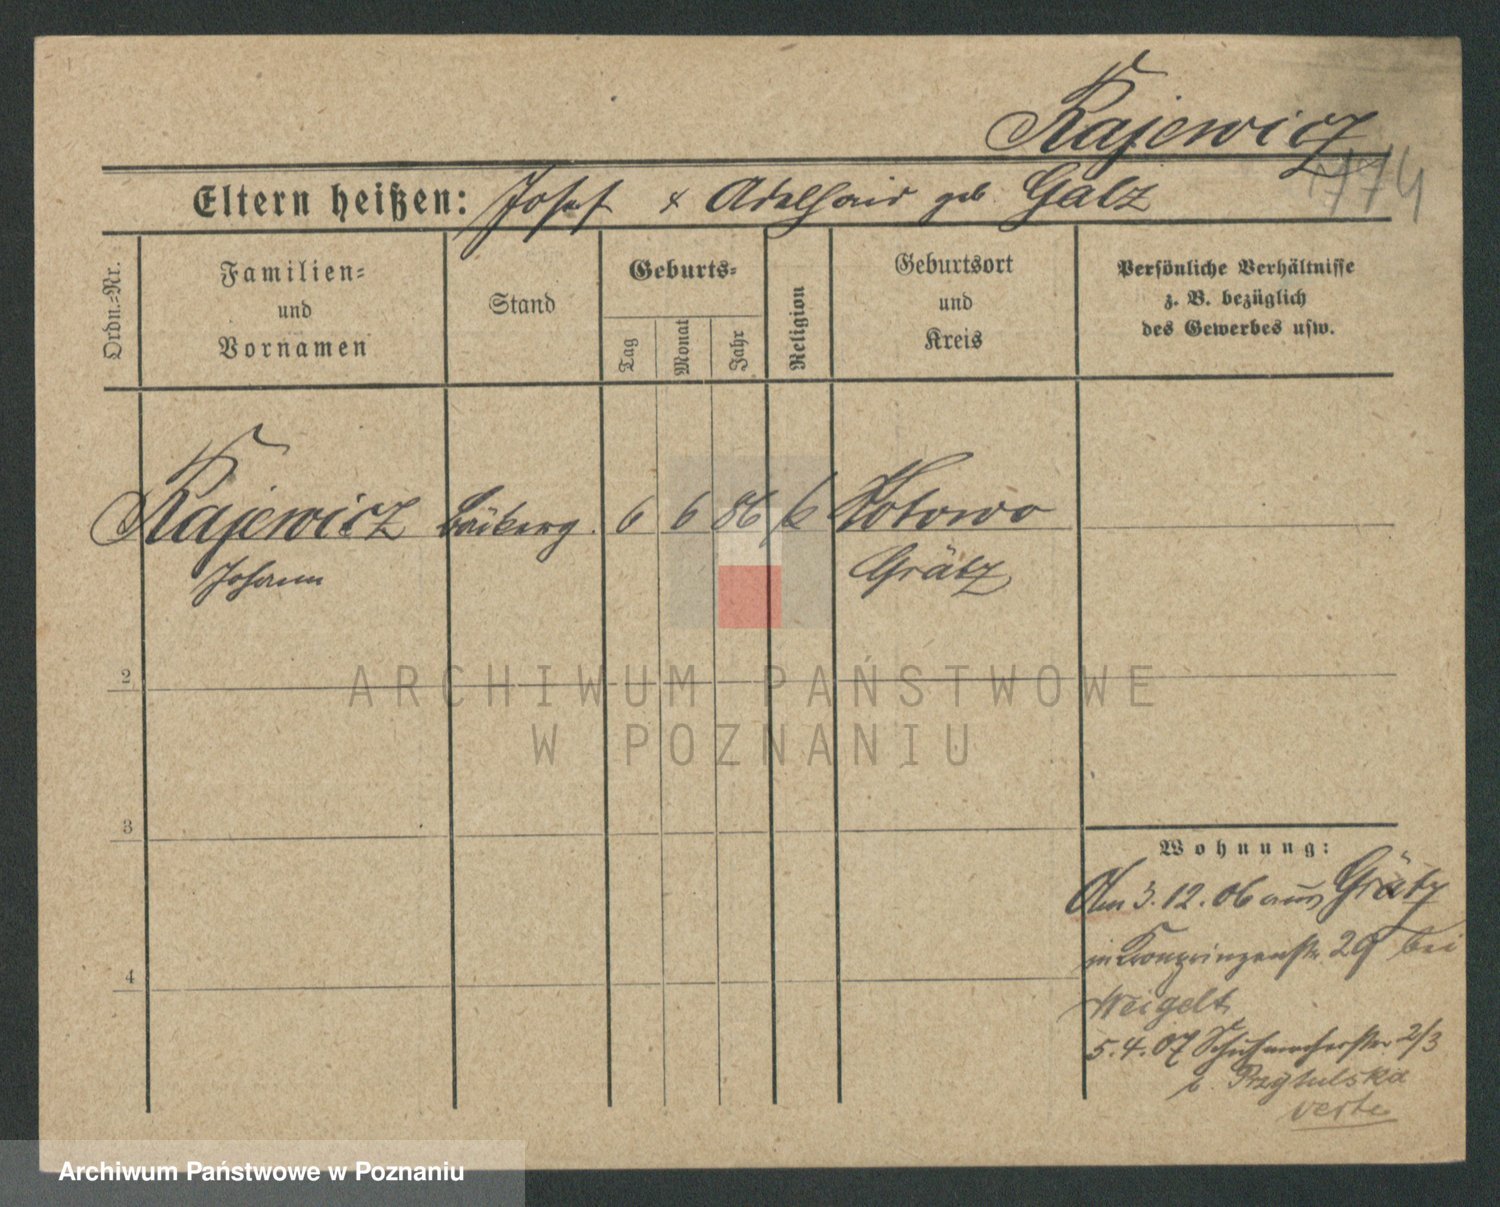 Rajewicz
1774
Eltern heißen: Josef & Adelhaid geb. Galz
Ordn.-Nr.
Familien- und Vornamen
Stand
Geburts-
Tag
Monat
Jahr
Religion
Geburtsort und Kreis
Persönliche Verhältnisse
z. B. bezüglich
des Gewerbes usw.
Rajewicz Bäckerg. 6 6 86 k Kotowo
Johann Grätz
2
3
4
Wohnung:
Am 3.12.06 aus Grätz
in Kronprinzenstr. 29 bei
Weigelt
5.4.07 Schuhmacherstr 2/3
b. Przybulska
verte
ARCHIWUM PAŃSTWOWE
W POZNANIU
Archiwum Państwowe w Poznaniu